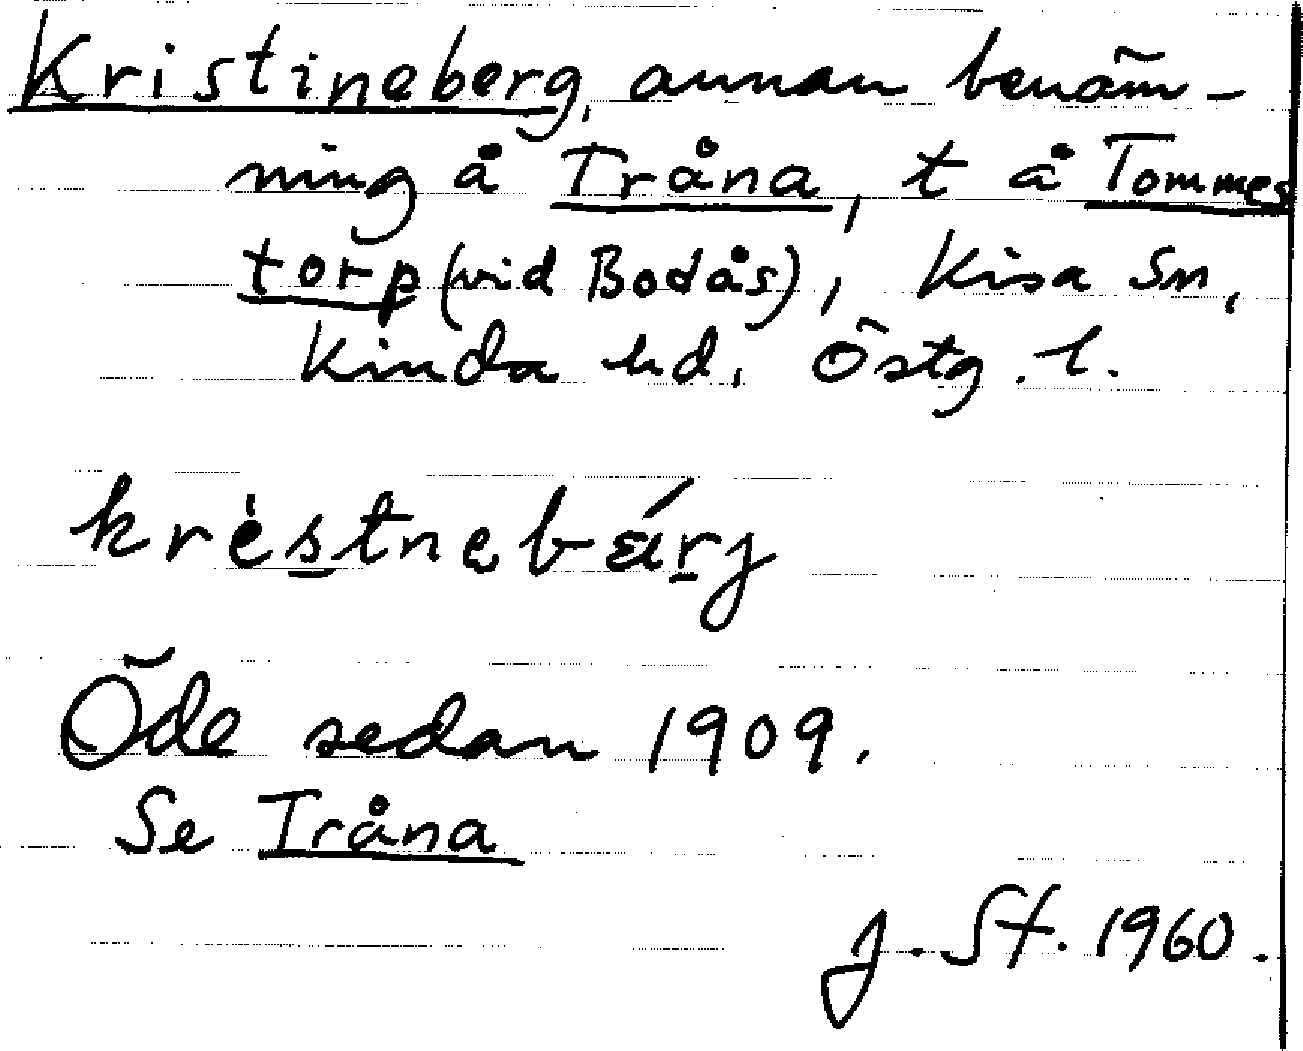 Kristineberg, annan benäm-
ning å Tråna, t å Tommes
torp (vid Bodås), Kisa sn,
Kinda hd, Östg. l.
krèstnebá̱rj
Öde sedan 1909.
Se Tråna
J. St. 1960.